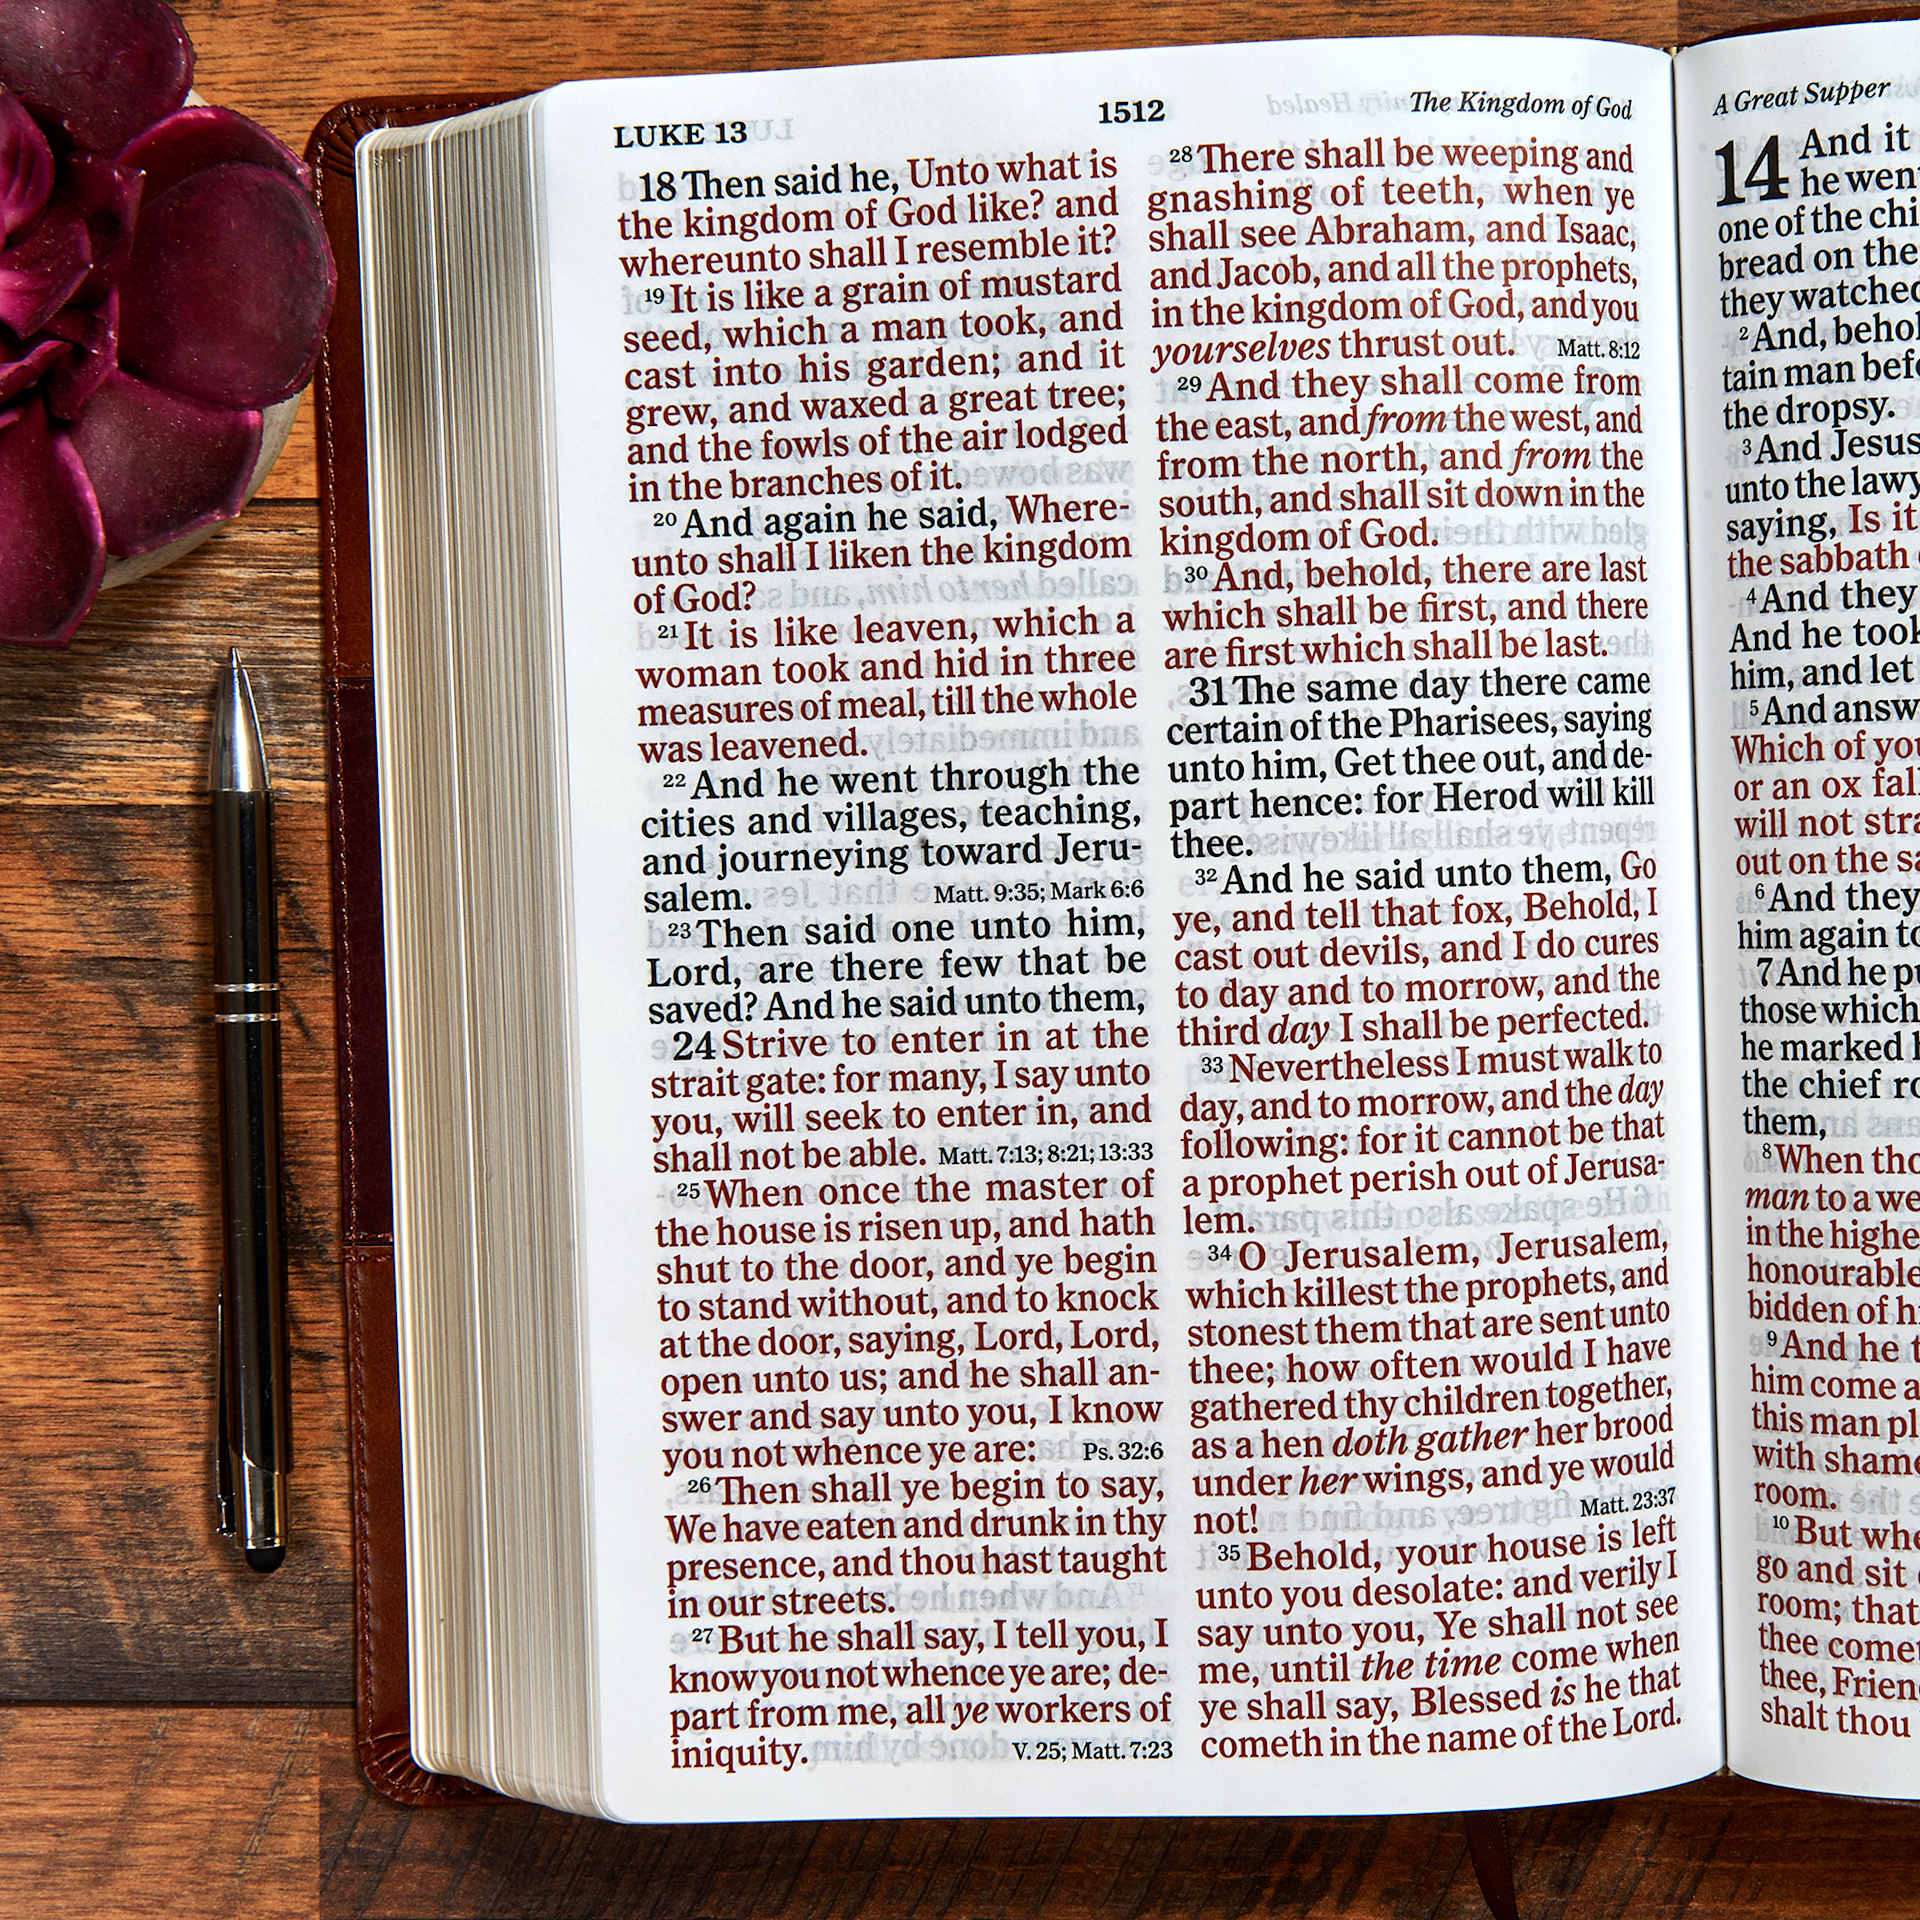 LUKE 13
1512
The Kingdom of God
18 Then said he, Unto what is
the kingdom of God like? and
whereunto shall I resemble it?
19 It is like a grain of mustard
seed, which a man took, and
cast into his garden; and it
grew, and waxed a great tree;
and the fowls of the air lodged
in the branches of it.
20 And again he said, Where-
unto shall I liken the kingdom
of God?
21 It is like leaven, which a
woman took and hid in three
measures of meal, till the whole
was leavened.
22 And he went through the
cities and villages, teaching,
and journeying toward Jeru-
salem. Matt. 9:35; Mark 6:6
23 Then said one unto him,
Lord, are there few that be
saved? And he said unto them,
24 Strive to enter in at the
strait gate: for many, I say unto
you, will seek to enter in, and
shall not be able. Matt. 7:13; 8:21; 13:33
25 When once the master of
the house is risen up, and hath
shut to the door, and ye begin
to stand without, and to knock
at the door, saying, Lord, Lord,
open unto us; and he shall an-
swer and say unto you, I know
you not whence ye are: Ps. 32:6
26 Then shall ye begin to say,
We have eaten and drunk in thy
presence, and thou hast taught
in our streets.
27 But he shall say, I tell you, I
know you not whence ye are; de-
part from me, all ye workers of
iniquity. V. 25; Matt. 7:23
28 There shall be weeping and
gnashing of teeth, when ye
shall see Abraham, and Isaac,
and Jacob, and all the prophets,
in the kingdom of God, and you
yourselves thrust out. Matt. 8:12
29 And they shall come from
the east, and from the west, and
from the north, and from the
south, and shall sit down in the
kingdom of God.
30 And, behold, there are last
which shall be first, and there
are first which shall be last.
31 The same day there came
certain of the Pharisees, saying
unto him, Get thee out, and de-
part hence: for Herod will kill
thee.
32 And he said unto them, Go
ye, and tell that fox, Behold, I
cast out devils, and I do cures
to day and to morrow, and the
third day I shall be perfected.
33 Nevertheless I must walk to
day, and to morrow, and the day
following: for it cannot be that
a prophet perish out of Jerusa-
lem.
34 O Jerusalem, Jerusalem,
which killest the prophets, and
stonest them that are sent unto
thee; how often would I have
gathered thy children together,
as a hen doth gather her brood
under her wings, and ye would
not! Matt. 23:37
35 Behold, your house is left
unto you desolate: and verily I
say unto you, Ye shall not see
me, until the time come when
ye shall say, Blessed is he that
cometh in the name of the Lord.
A Great Supper
14 And it
he went
one of the chi
bread on the
they watched
2 And, behol
tain man befo
the dropsy.
3 And Jesus
unto the lawy
saying, Is it
the sabbath
4 And they
And he took
him, and let
5 And answ
Which of you
or an ox fall
will not stra
out on the sa
6 And they
him again to
7 And he pu
those which
he marked
the chief ro
them,
8 When tho
man to a we
in the highe
honourable
bidden of hi
9 And he t
him come a
this man pl
with shame
room.
10 But whe
go and sit
room; that
thee come
thee, Frien
shalt thou